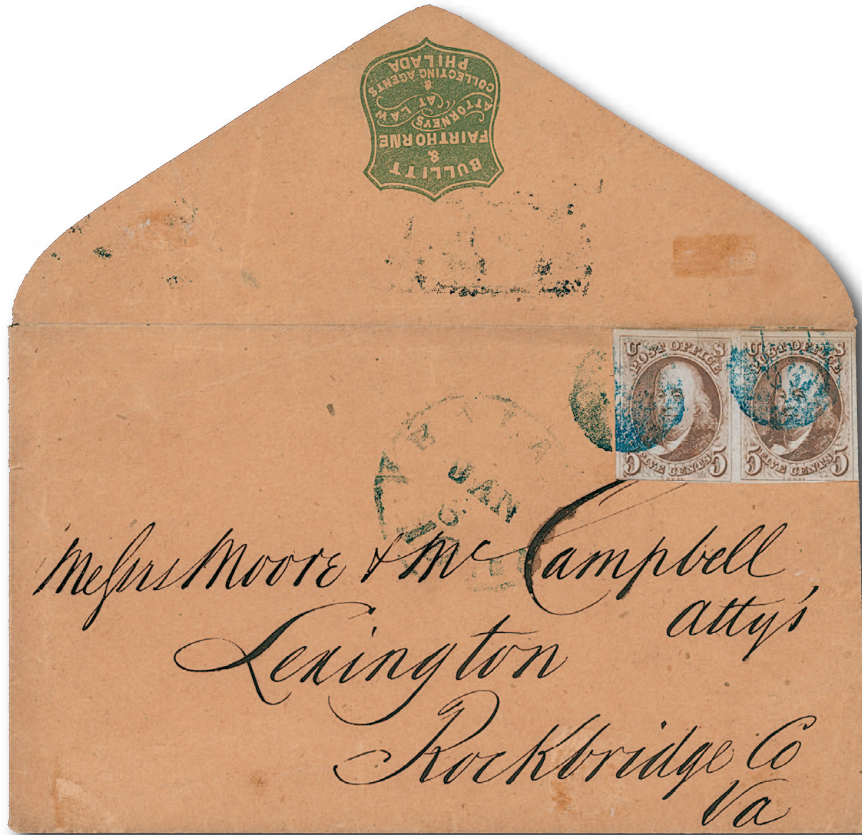 BULLITT
&
FAIRTHORNE
ATTORNEYS AT LAW
&
COLLECTING AGENTS
PHILADA
U S
POST OFFICE
5 FIVE CENTS 5
U S
POST OFFICE
5 FIVE CENTS 5
JAN
Messrs Moore & McCampbell
Atty's
Lexington
Rockbridge Co
Va